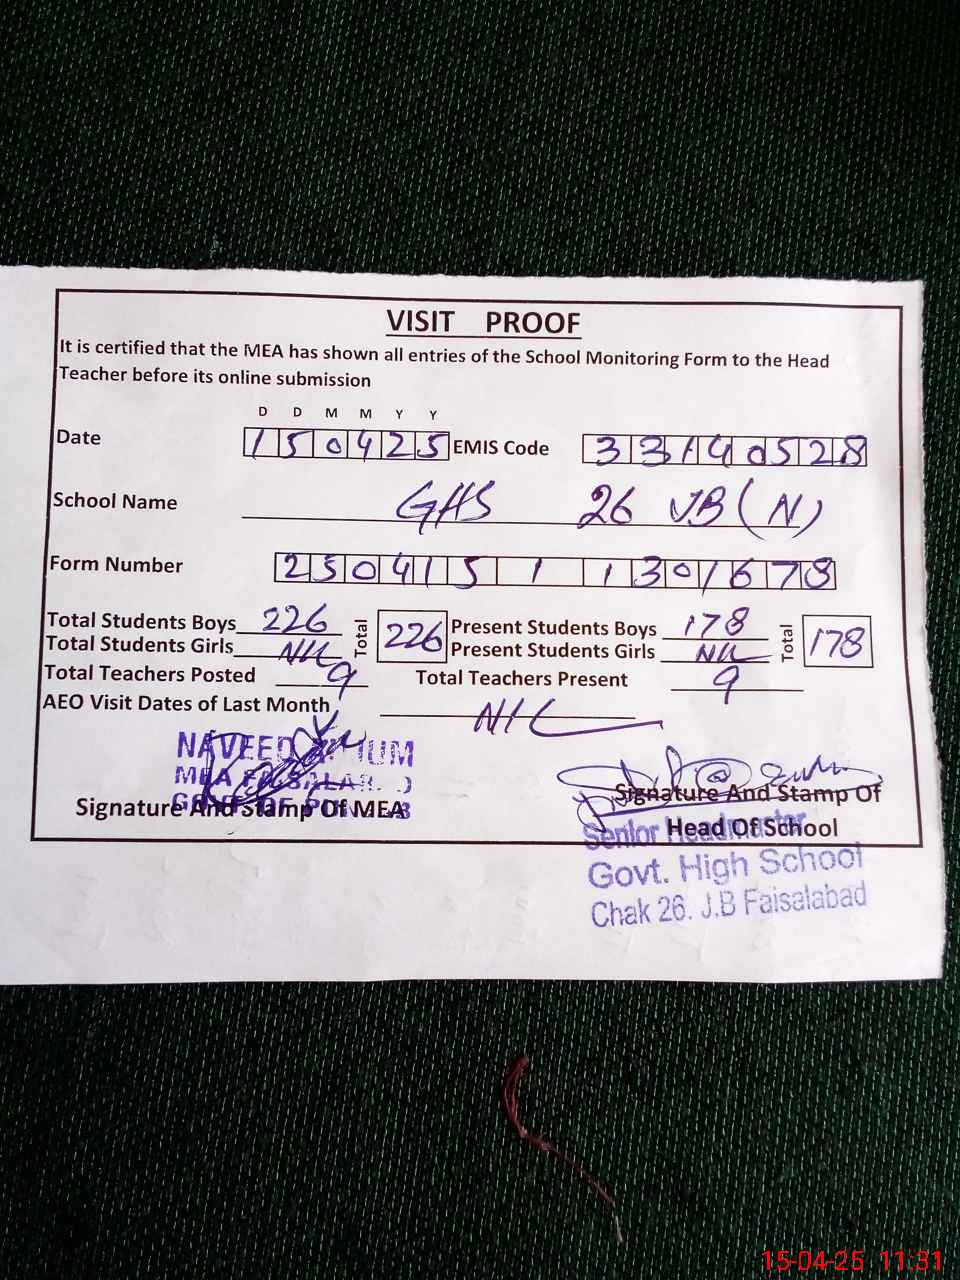 VISIT PROOF
It is certified that the MEA has shown all entries of the School Monitoring Form to the Head
Teacher before its online submission
D D M M Y Y
Date 150425 EMIS Code 33140528
School Name GHS 26 JB (N)
Form Number 25041511301678
Total Students Boys 226 Total 226 Present Students Boys 178 Total 178
Total Students Girls Nil Present Students Girls Nil
Total Teachers Posted 9 Total Teachers Present 9
AEO Visit Dates of Last Month NIL
NAVEED
MEA
Signature And Stamp Of MEA
Signature And Stamp Of
Head Of School
Senior Headmaster
Govt. High School
Chak 26. J.B Faisalabad
15-04-25 11:31